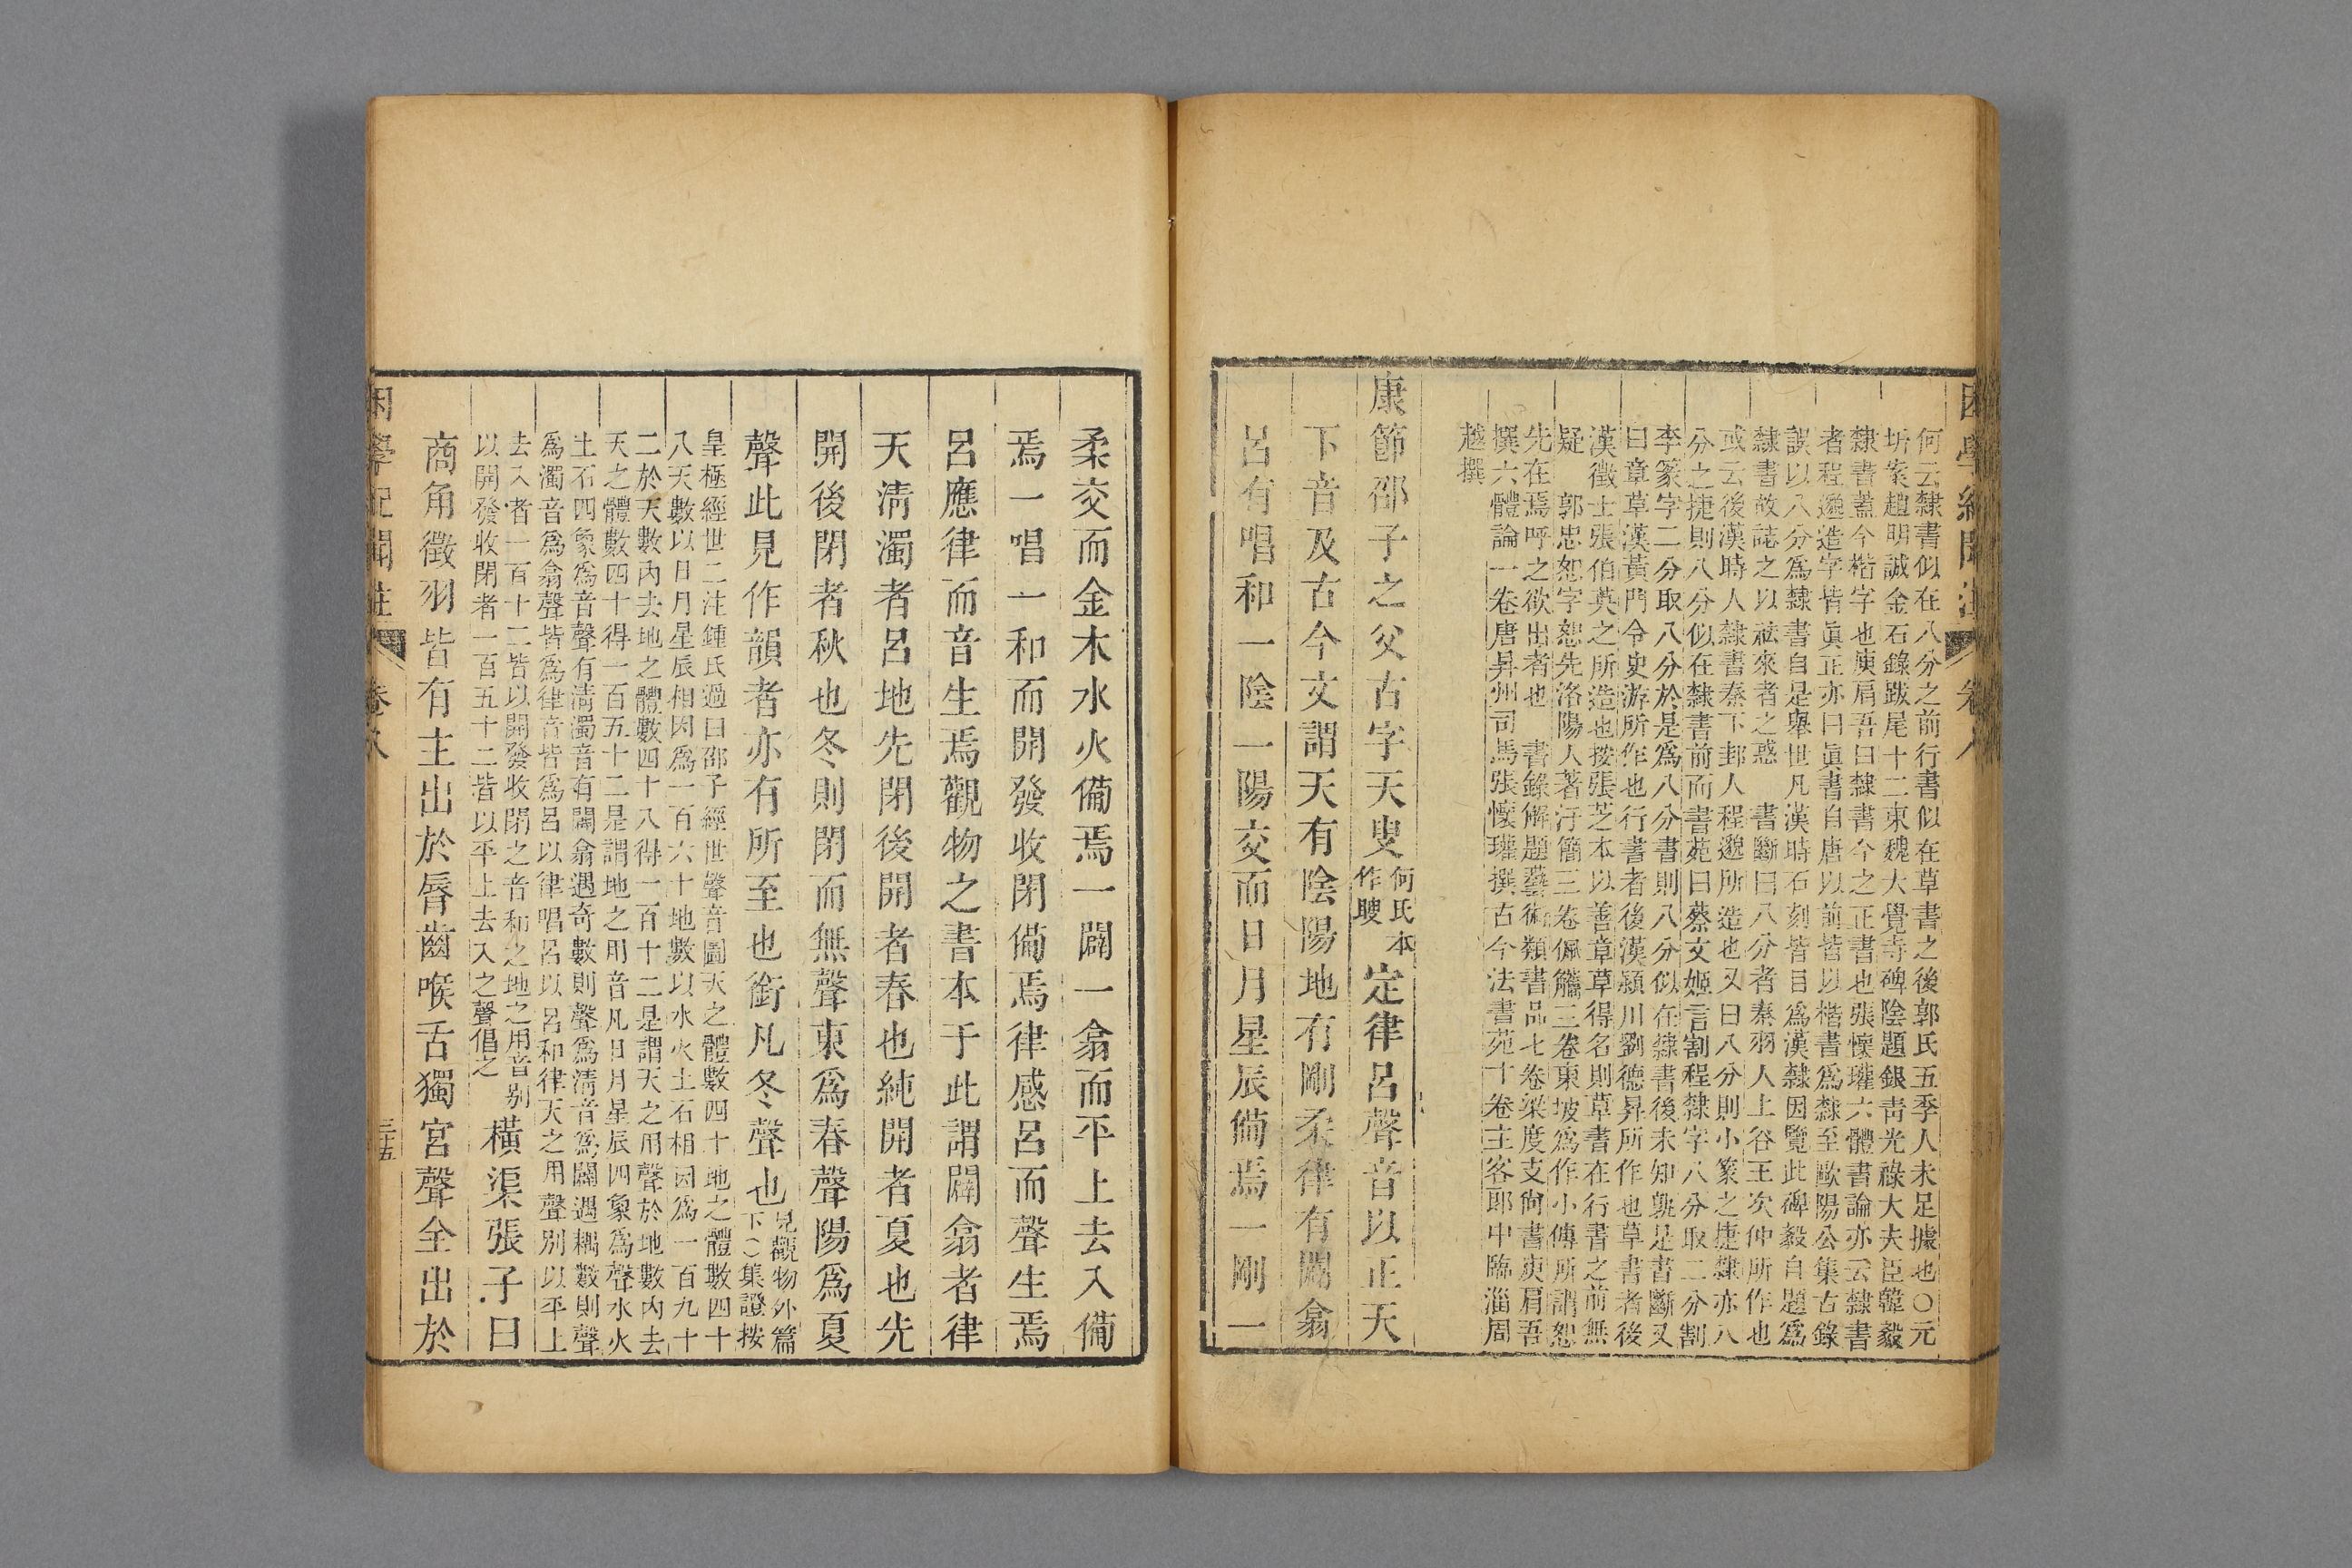 困學紀聞注 卷八
何云隸書似在八分之前行書似在草書之後郭氏五季人未足據也○元
圻案趙明誠金石錄跋尾十二東魏大覺寺碑陰題銀靑光祿大夫臣韓毅
隸書蓋今楷字也庾肩吾曰隸書今之正書也張懷瓘六體書論亦云隸書
者程邈造字皆眞正亦曰眞書自唐以前皆以楷書爲隸至歐陽公集古錄
誤以八分爲隸書自是舉世凡漢時石刻皆目爲漢隸因覽此碑毅自題爲
隸書故誌之以祛來者之惑 書斷曰八分者秦羽人上谷王次仲所作也
或云後漢時人隸書秦下邽人程邈所造也又曰八分則小篆之捷隸亦八
分之捷則八分似在隸書前而書苑曰蔡文姬言割程隸字八分取二分割
李篆字二分取八分於是爲八分書則八分似在隸書後未知孰是書斷又
曰章草漢黃門令史游所作也行書者後漢潁川劉德昇所作也草書者後
漢徵士張伯英之所造也按張芝本以善章草得名則草書在行書之前無
疑 郭忠恕字恕先洛陽人著汗簡三卷佩觿三卷東坡爲作小傳所謂恕
先在焉呼之欲出者也 書錄解題藝術類書品七卷梁度支尙書庾肩吾
撰六體論一卷唐昇州司馬張懷瓘撰古今法書苑十卷主客郎中臨淄周
越撰
康節邵子之父古字天叟何氏本作聰定律呂聲音以正天
下音及古今文謂天有陰陽地有剛柔律有闢翕
呂有唱和一陰一陽交而日月星辰僃焉一剛一
柔交而金木水火僃焉一闢一翕而平上去入僃
焉一唱一和而開發收閉僃焉律感呂而聲生焉
呂應律而音生焉觀物之書本于此謂闢翕者律
天淸濁者呂地先閉後開者春也純開者夏也先
開後閉者秋也冬則閉而無聲東爲春聲陽爲夏
聲此見作韻者亦有所至也銜凡冬聲也見觀物外篇
下○集證按
皇極經世二注鍾氏過曰邵子經世聲音圖天之體數四十地之體數四十
八天數以日月星辰相因爲一百六十地數以水火土石相因爲一百九十
二於天數內去地之體數四十八得一百十二是謂天之用聲於地數內去
天之體數四十得一百五十二是謂地之用音凡日月星辰四象爲聲水火
土石四象爲音聲有淸濁音有闢翕遇奇數則聲爲淸音爲闢遇耦數則聲
爲濁音爲翕聲皆爲律音皆爲呂以律唱呂以呂和律天之用聲別以平上
去入者一百十二皆以開發收閉之音和之地之用音別
以開發收閉者一百五十二皆以平上去入之聲倡之
橫渠張子曰
商角徵羽皆有主出於脣齒喉舌獨宮聲全出於
困學紀聞注 卷八 三十五